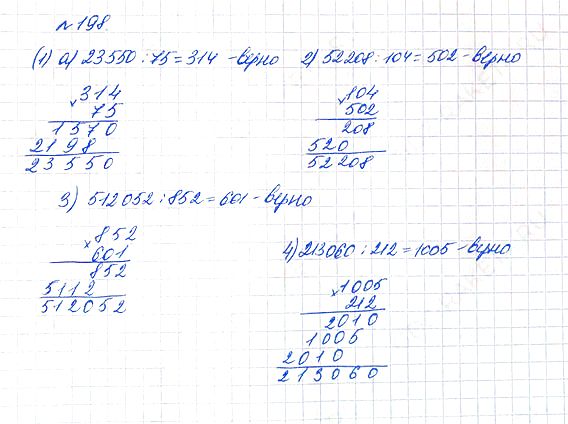 №198.
(1) а) 23550 : 75 = 314 - верно
× 314
75
1570
2198
23550
2) 52208 : 104 = 502 - верно
× 104
502
208
520
52208
3) 512052 : 852 = 601 - верно
× 852
601
852
5112
512052
4) 213060 : 212 = 1005 - верно
× 1005
212
2010
1005
2010
213060